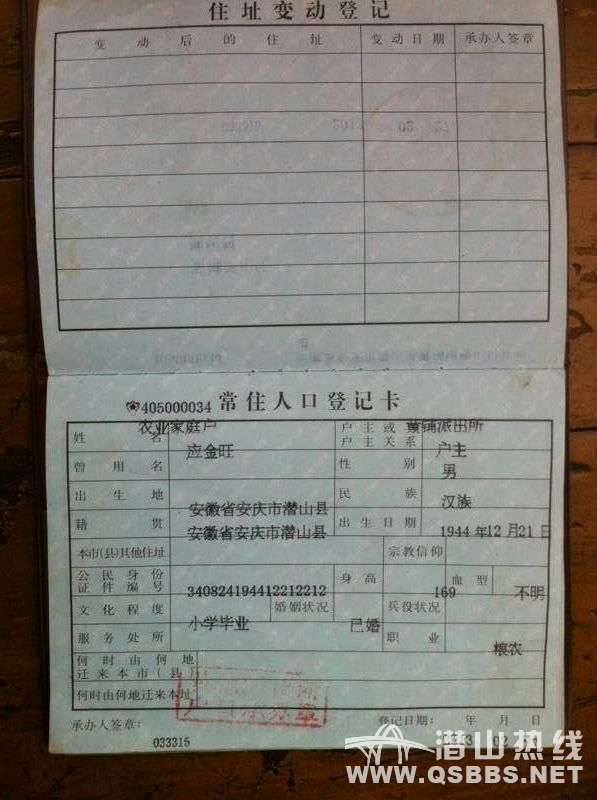 住址变动登记
变动后的住址 变动日期 承办人签章
405000034 常住人口登记卡
农业家庭户 黄铺派出所
姓名 应金旺 户主或与户主关系 户主
曾用名 性别 男
出生地 安徽省安庆市潜山县 民族 汉族
籍贯 安徽省安庆市潜山县 出生日期 1944 年12 月21 日
本市(县)其他住址 宗教信仰
公民身份证件编号 340824194412212212 身高 169 血型 不明
文化程度 小学毕业 婚姻状况 已婚 兵役状况
服务处所 职业 粮农
何时由何地迁来本市(县)
何时由何地迁来本址
承办人签章: 登记日期: 年 月 日
033315
潜山热线
WWW.QSBBS.NET